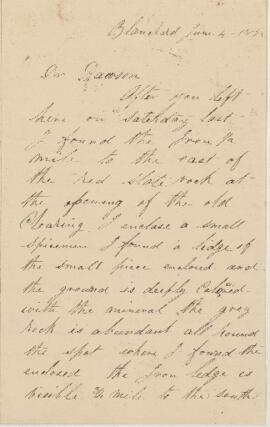 Blanchard June 4
Dr Dawson
After you left
here on Saturday last
I found the Iron 1/2
mile to the east of
the red slate rock at
the opening of the old
Clearing. I enclose a small
spisemen I found a ledge of
the small piece enclosed and
the ground is deeply Colored
with the mineral the gray
rock is abundant all round
the spot where I found the
enclosed the Iron ledge is
visible mile to the south